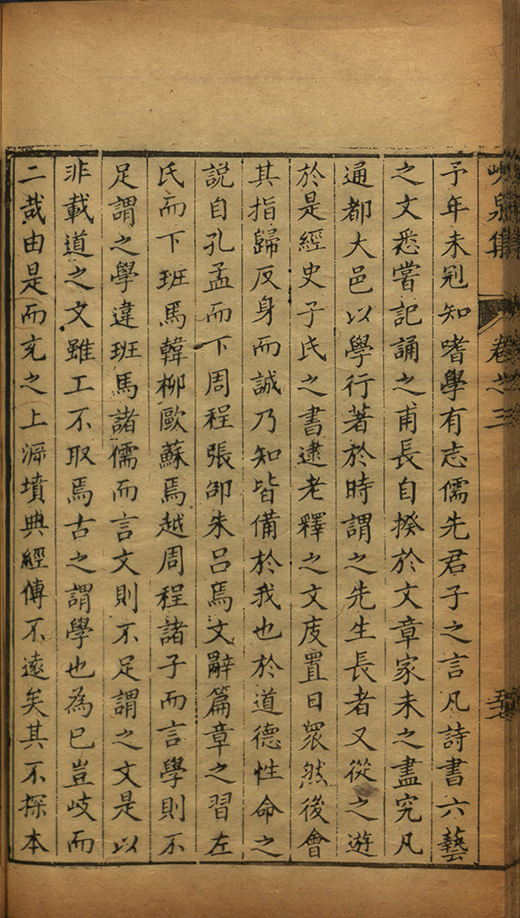 峴泉集 卷之三
予年未冠知嗜學有志儒先君子之言凡詩書六藝
之文悉嘗記誦之甫長自揆於文章家未之盡究凡
通都大邑以學行著於時謂之先生長者又從之遊
於是經史子氏之書逮老釋之文庋置日衆然後會
其指歸反身而誠乃知皆備於我也於道德性命之
說自孔孟而下周程張邵朱呂焉文辭篇章之習左
氏而下班馬韓柳歐蘇焉越周程諸子而言學則不
足謂之學違班馬諸儒而言文則不足謂之文是以
非載道之文雖工不取焉古之謂學也為已豈歧而
二哉由是而充之上泝墳典經傳不遠矣其不探本